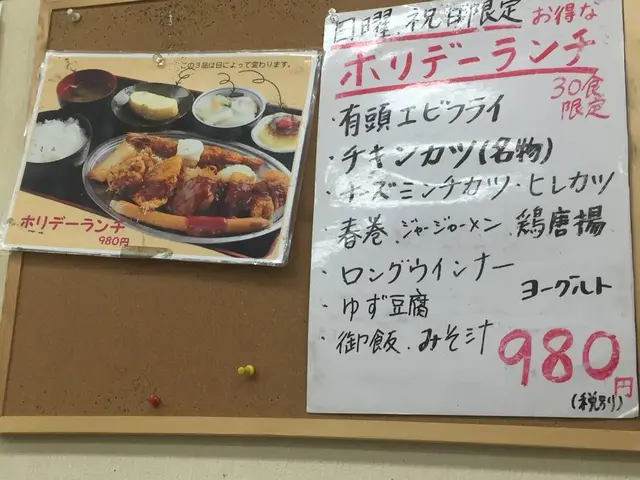 この3品は日によって変わります。
ホリデーランチ
980円
日曜、祝日限定 お得な
ホリデーランチ
30食
限定
・有頭エビフライ
・チキンカツ(名物)
・チーズミンチカツ・ヒレカツ
・春巻.ジャージャーメン.鶏唐揚
・ロングウインナー
ヨーグルト
・ゆず豆腐
・御飯.みそ汁
980円
(税別)